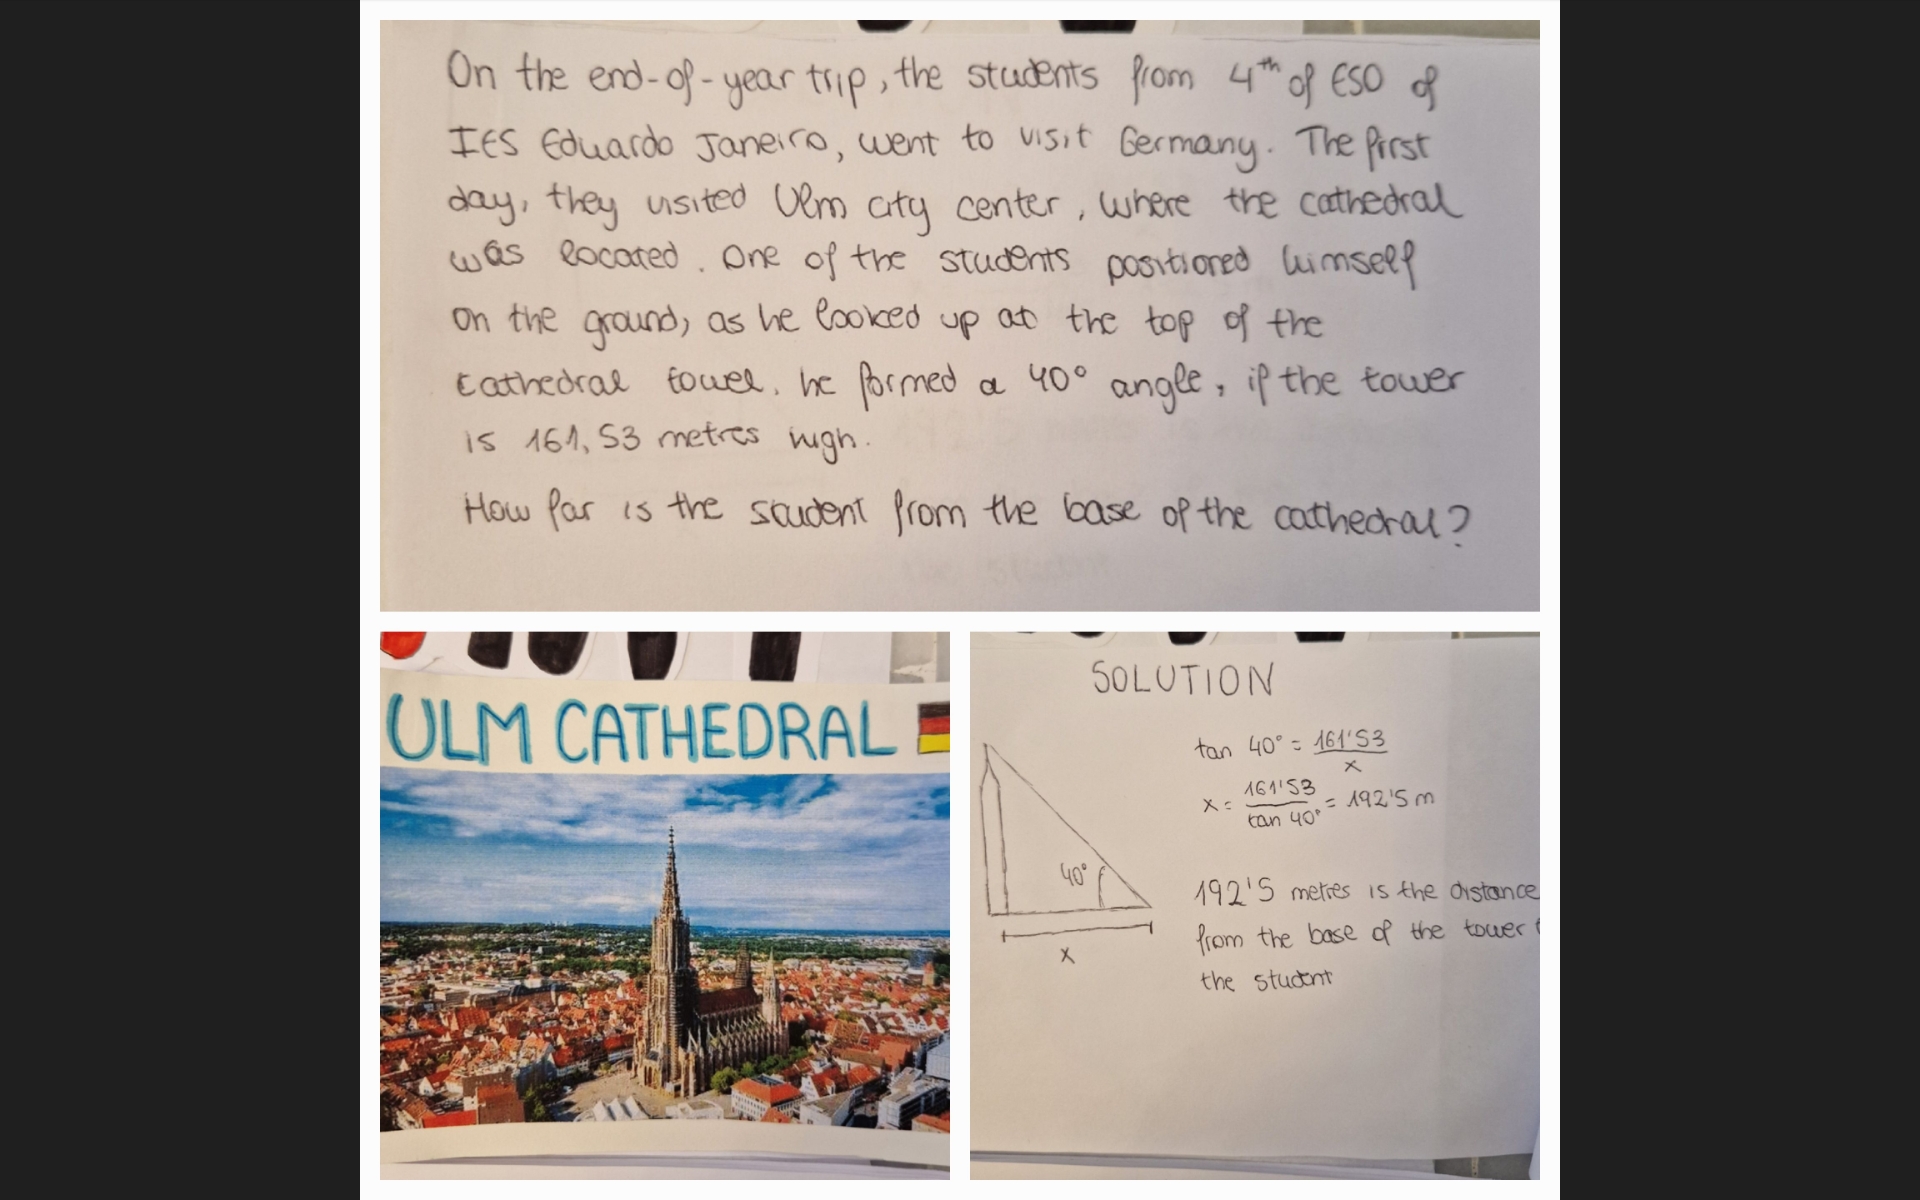 On the end-of-year trip, the students from 4th of ESO of
IES Eduardo Janeiro, went to visit Germany. The first
day, they visited Ulm city center, where the cathedral
was located. One of the students positioned himself
on the ground, as he looked up at the top of the
cathedral towel. he formed a 40° angle, if the tower
is 161,53 metres high.
How far is the student from the base of the cathedral?
ULM CATHEDRAL
SOLUTION
tan 40° = 161'53 / x
x = 161'53 / tan 40° = 192'5 m
40°
x
192'5 metres is the distance
from the base of the tower
the student